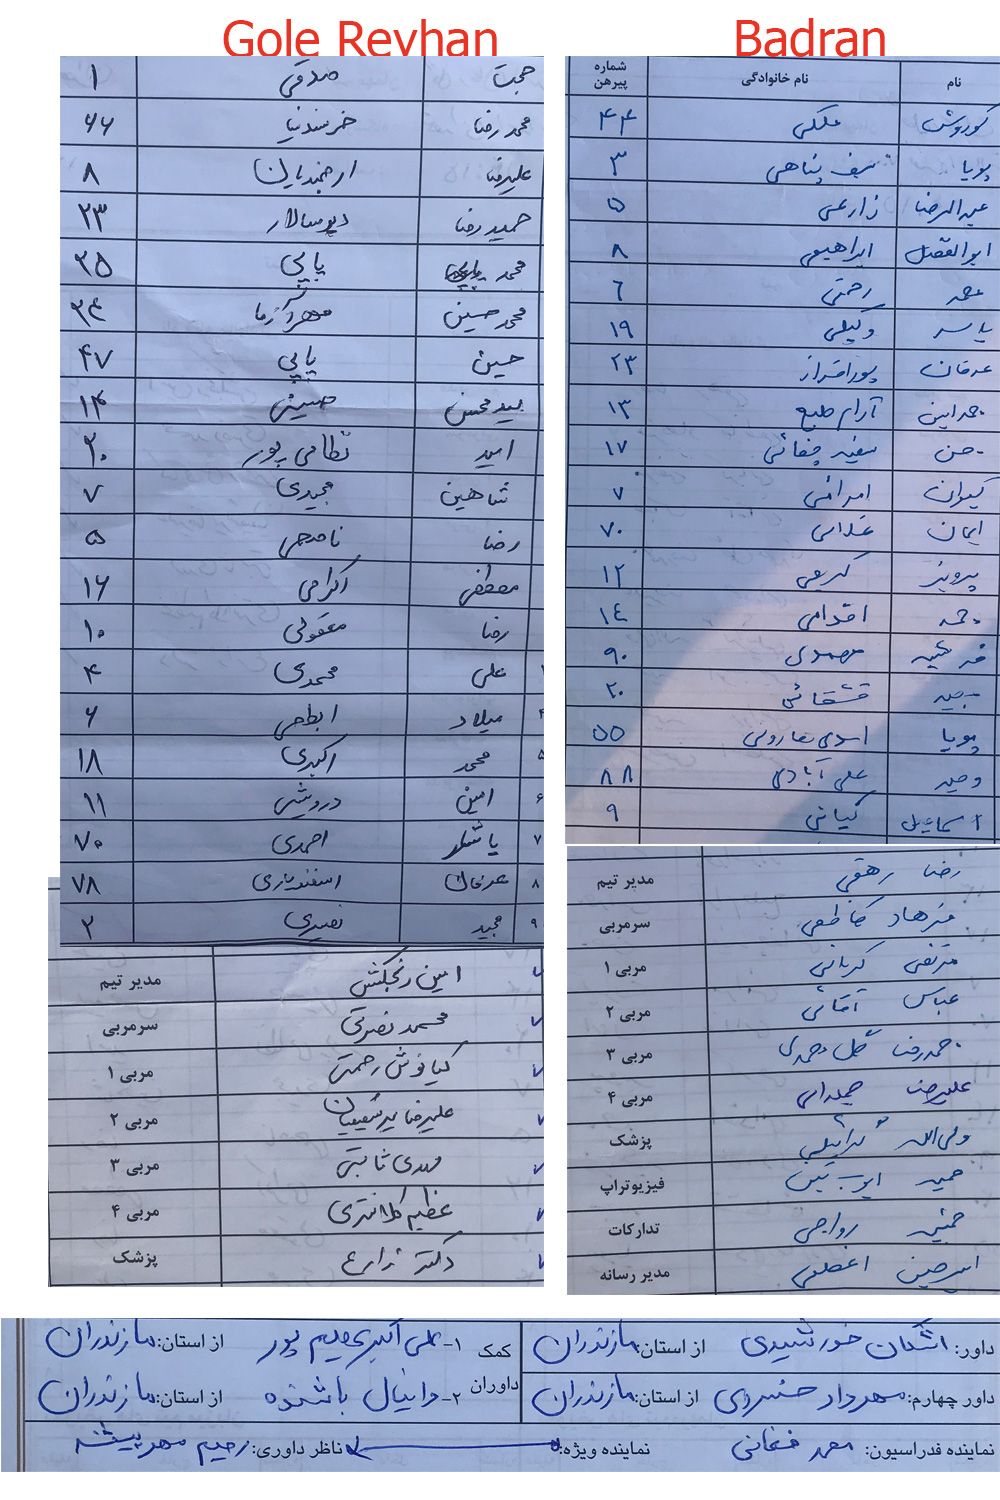 Gole Reyhan
حجت صدقی ۱
محمدرضا خرسندنیا ۶۶
علیرضا ارجمندیان ۸
حمیدرضا دیوسالار ۲۳
محمد پاپی ۲۵
محمدحسین مهرآزما ۳۴
حسین پاپی ۴۷
سیدمحسن حسینی ۱۴
امید نظامی پور ۲۰
شاهین مجیدی ۷
رضا ناصحی ۵
مصطفی اکرامی ۱۶
رضا معقولی ۱۰
علی محمدی ۴
میلاد ابطحی ۶
محمد اکبری ۱۸
امین درویشی ۱۱
یاشار احمدی ۷۰
عرفان اسفندیاری ۷۸
مجید نصیری ۲
امین رنجکش مدیر تیم
محمد نصرتی سرمربی
کیانوش رحمتی مربی ۱
علیرضا میرشفیعیان مربی ۲
مهدی ثابتی مربی ۳
عظیم کلانتری مربی ۴
دکتر زارع پزشک
Badran
نام نام خانوادگی شماره پیرهن
کوروش ملکی ۴۴
پویا سیف پناهی ۳
عبدالرضا زارعی ۵
ابوالفضل ابراهیمی ۸
محمد رحمتی ۶
یاسر وکیلی ۱۹
عرفان پورافراز ۲۳
محمدامین آرام طبع ۱۳
حسن سفید چغائی ۱۷
کیوان امرائی ۷
ایمان ۷۰
پرویز کریمی ۱۲
محمد اقدامی ۱۴
فرشید مهمدی ۹۰
مجید قشقائی ۲۰
پویا اسدی هارونی ۵۵
وحید علی آبادی ۸۸
اسماعیل کیانی ۹
رضا رهقی مدیر تیم
فرهاد کاظمی سرمربی
مرتضی کرمانی مربی ۱
عباس آقائی مربی ۲
محمدرضا گل محمدی مربی ۳
علیرضا مربی ۴
ولی اله پزشک
حمید فیزیوتراپ
رواجی تدارکات
امیرحسین اعظمی مدیر رسانه
داور: اشکان خورشیدی از استان: مازندران کمک داوران ۱- علی اکبر پور از استان: مازندران
داور چهارم: مهرداد خسروی از استان: مازندران ۲- دانیال باشنده از استان: مازندران
نماینده فدراسیون: محمد فغانی نماینده ویژه: ناظر داوری: رحیم مهرپیشه